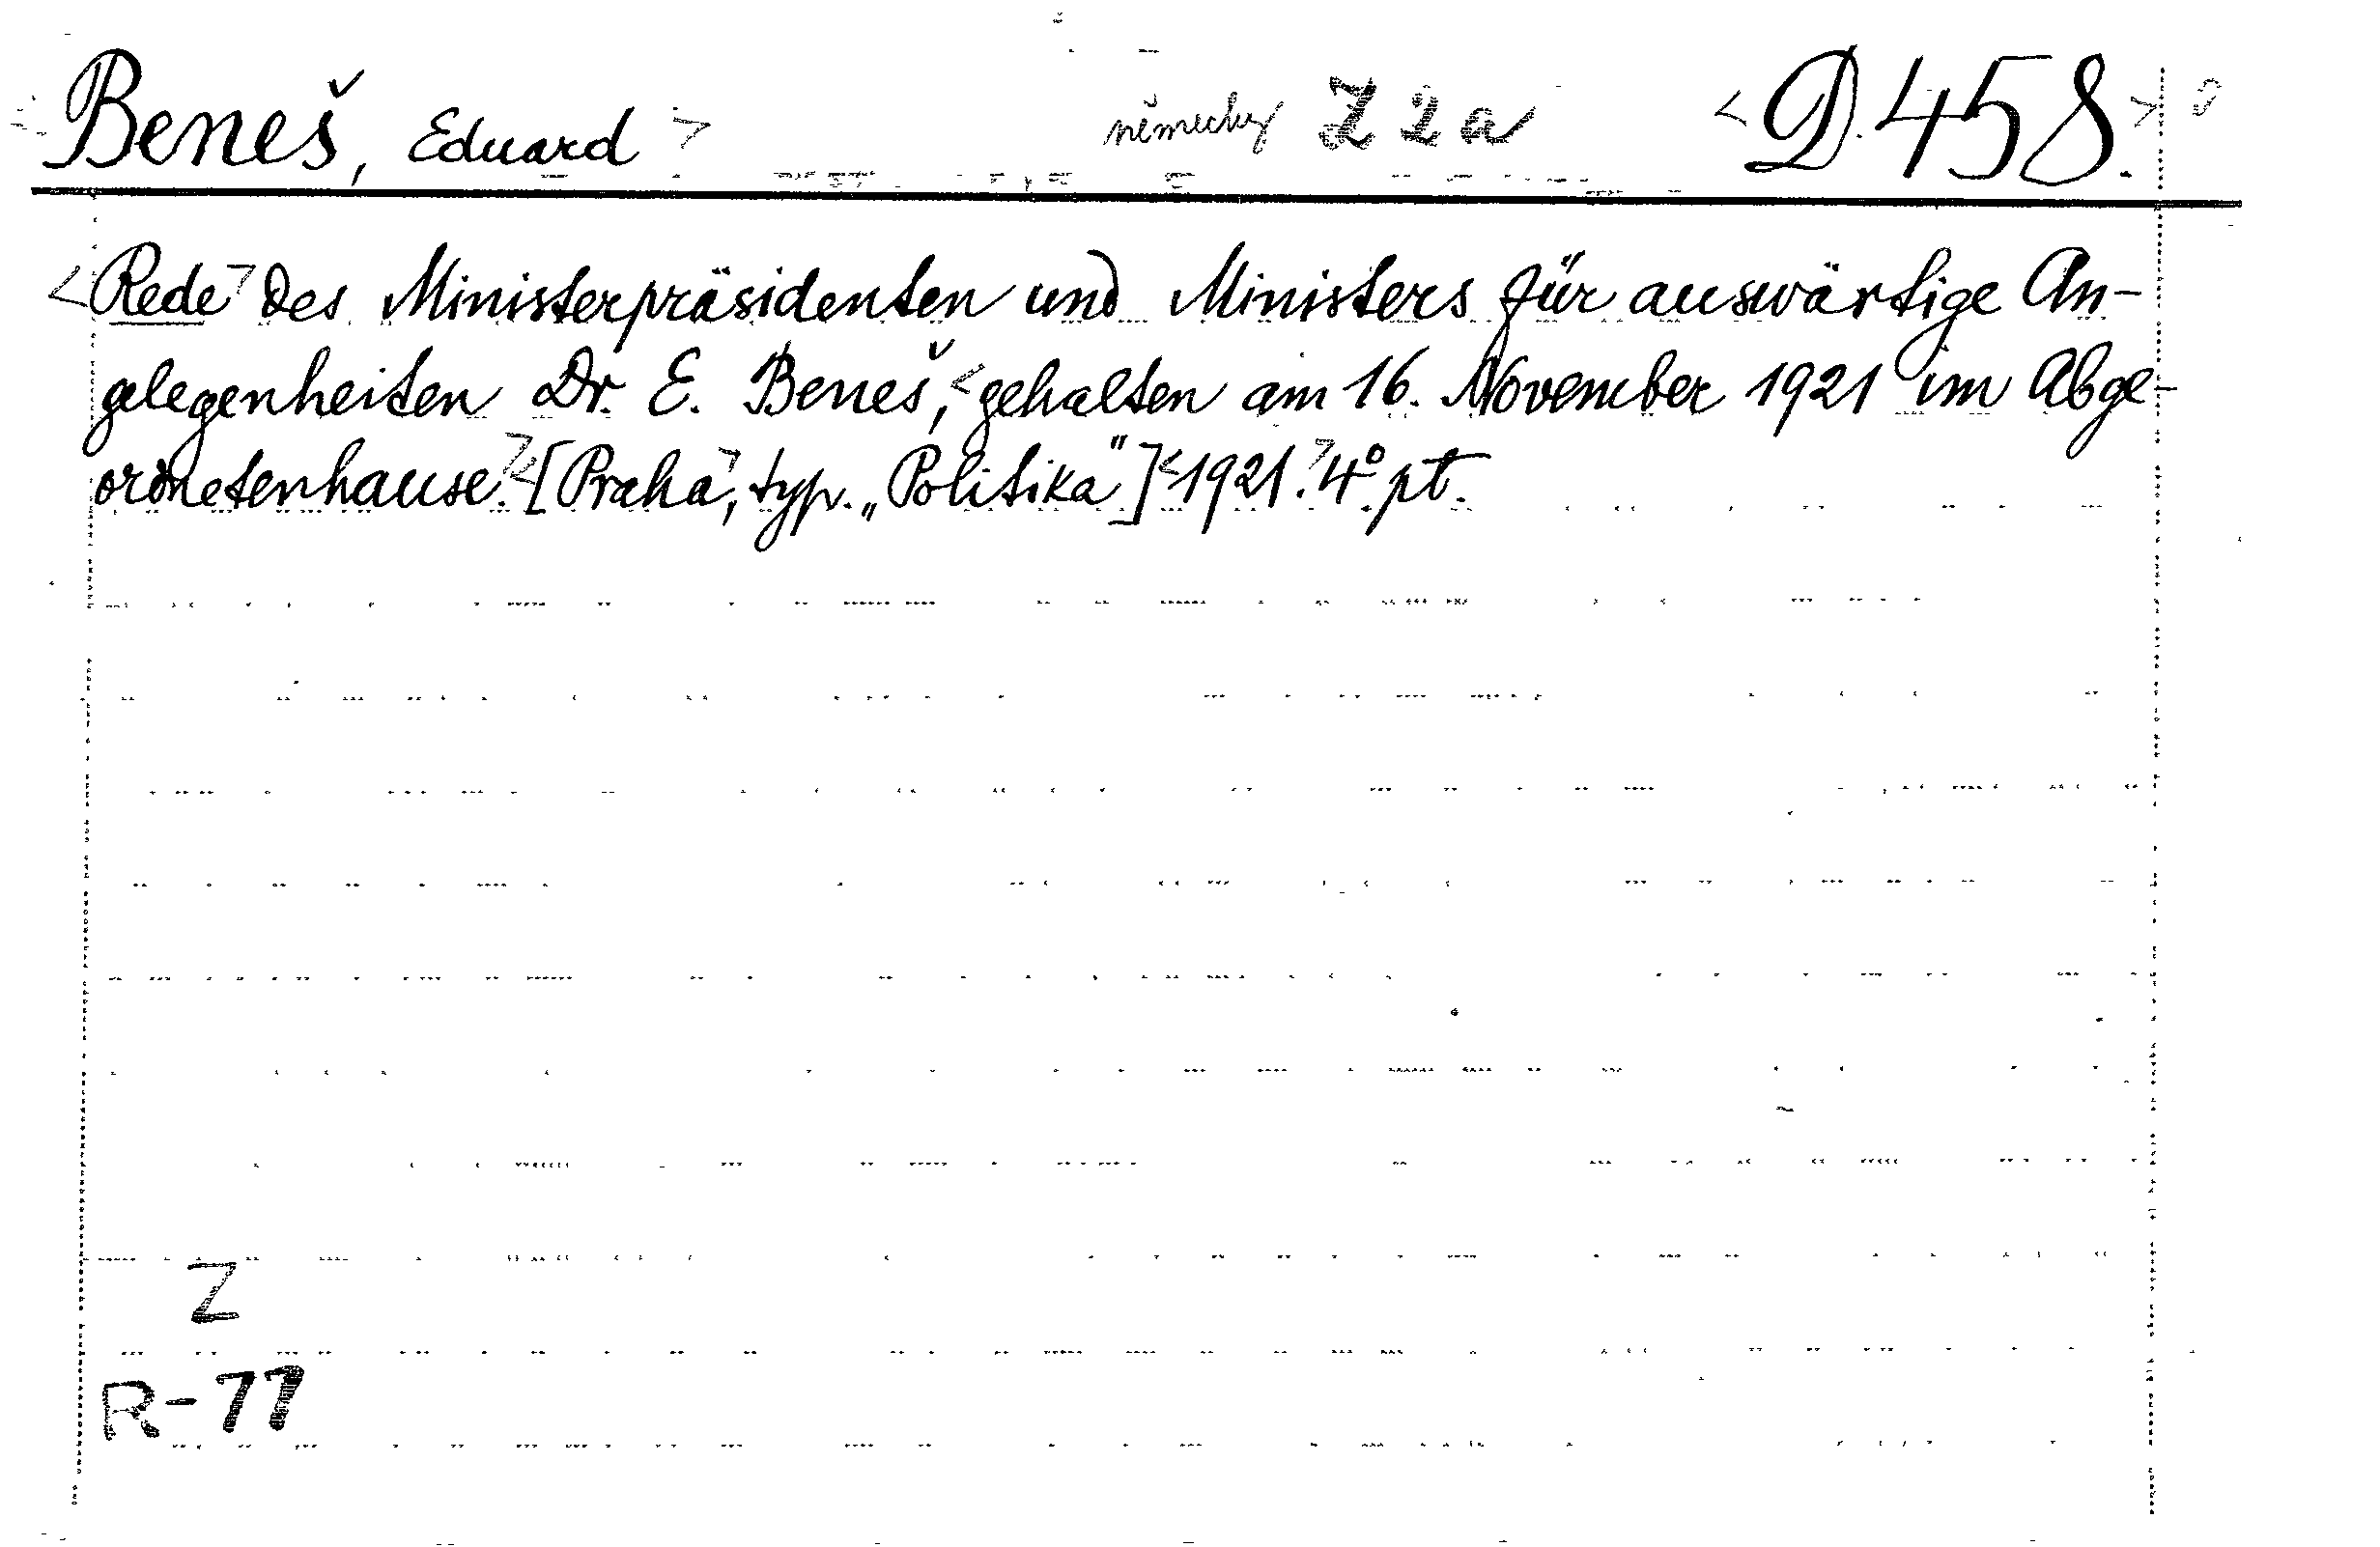 Beneš, Eduard > německy Z 2 a <D.458.>
<Rede> des Ministerpräsidenten und Ministers für auswärtige An-
gelegenheiten Dr. E. Beneš, <gehalten am 16. November 1921 im Abge-
ordnetenhause.> <[Praha>, typ. „Politika"] <1921.> 4° pt.
Z
R-77